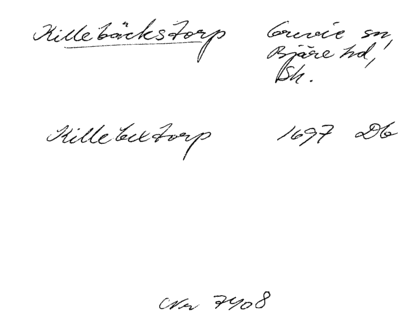 Killebäckstorp Grevie sn,
Bjäre hd,
Sk.
Killebextorp 1697 Db
Nr 7408